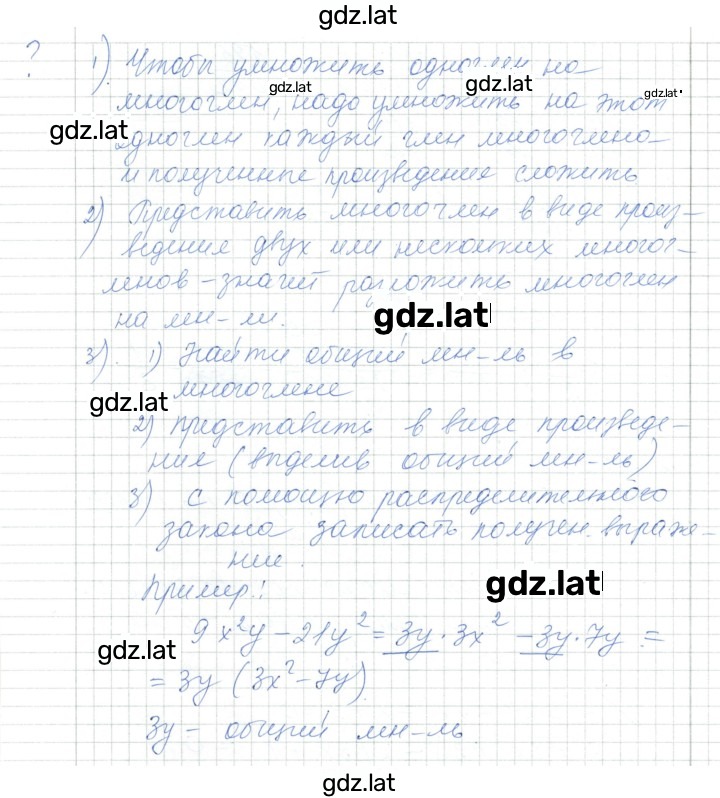 gdz.lat
? 1) Чтобы умножить одночлен на
gdz.lat gdz.lat gdz.lat
многочлен, надо умножить на этот
gdz.lat
одночлен каждый член многочлена
и полученные произведения сложить
2) Представить многочлен в виде произ-
ведения двух или нескольких многоч-
ленов – значит разложить многочлен
на мн-ли.
gdz.lat
3). 1) Найти общий мн-ль в
многочлене
gdz.lat
2) представить в виде произведе-
ния (выделив общий мн-ль)
3) с помощью распределительного
закона записать получен. выраже-
ние.
Пример:
gdz.lat
9x²y – 21y² = 3y · 3x² – 3y · 7y =
gdz.lat
= 3y (3x² – 7y)
3y – общий мн-ль.
gdz.lat